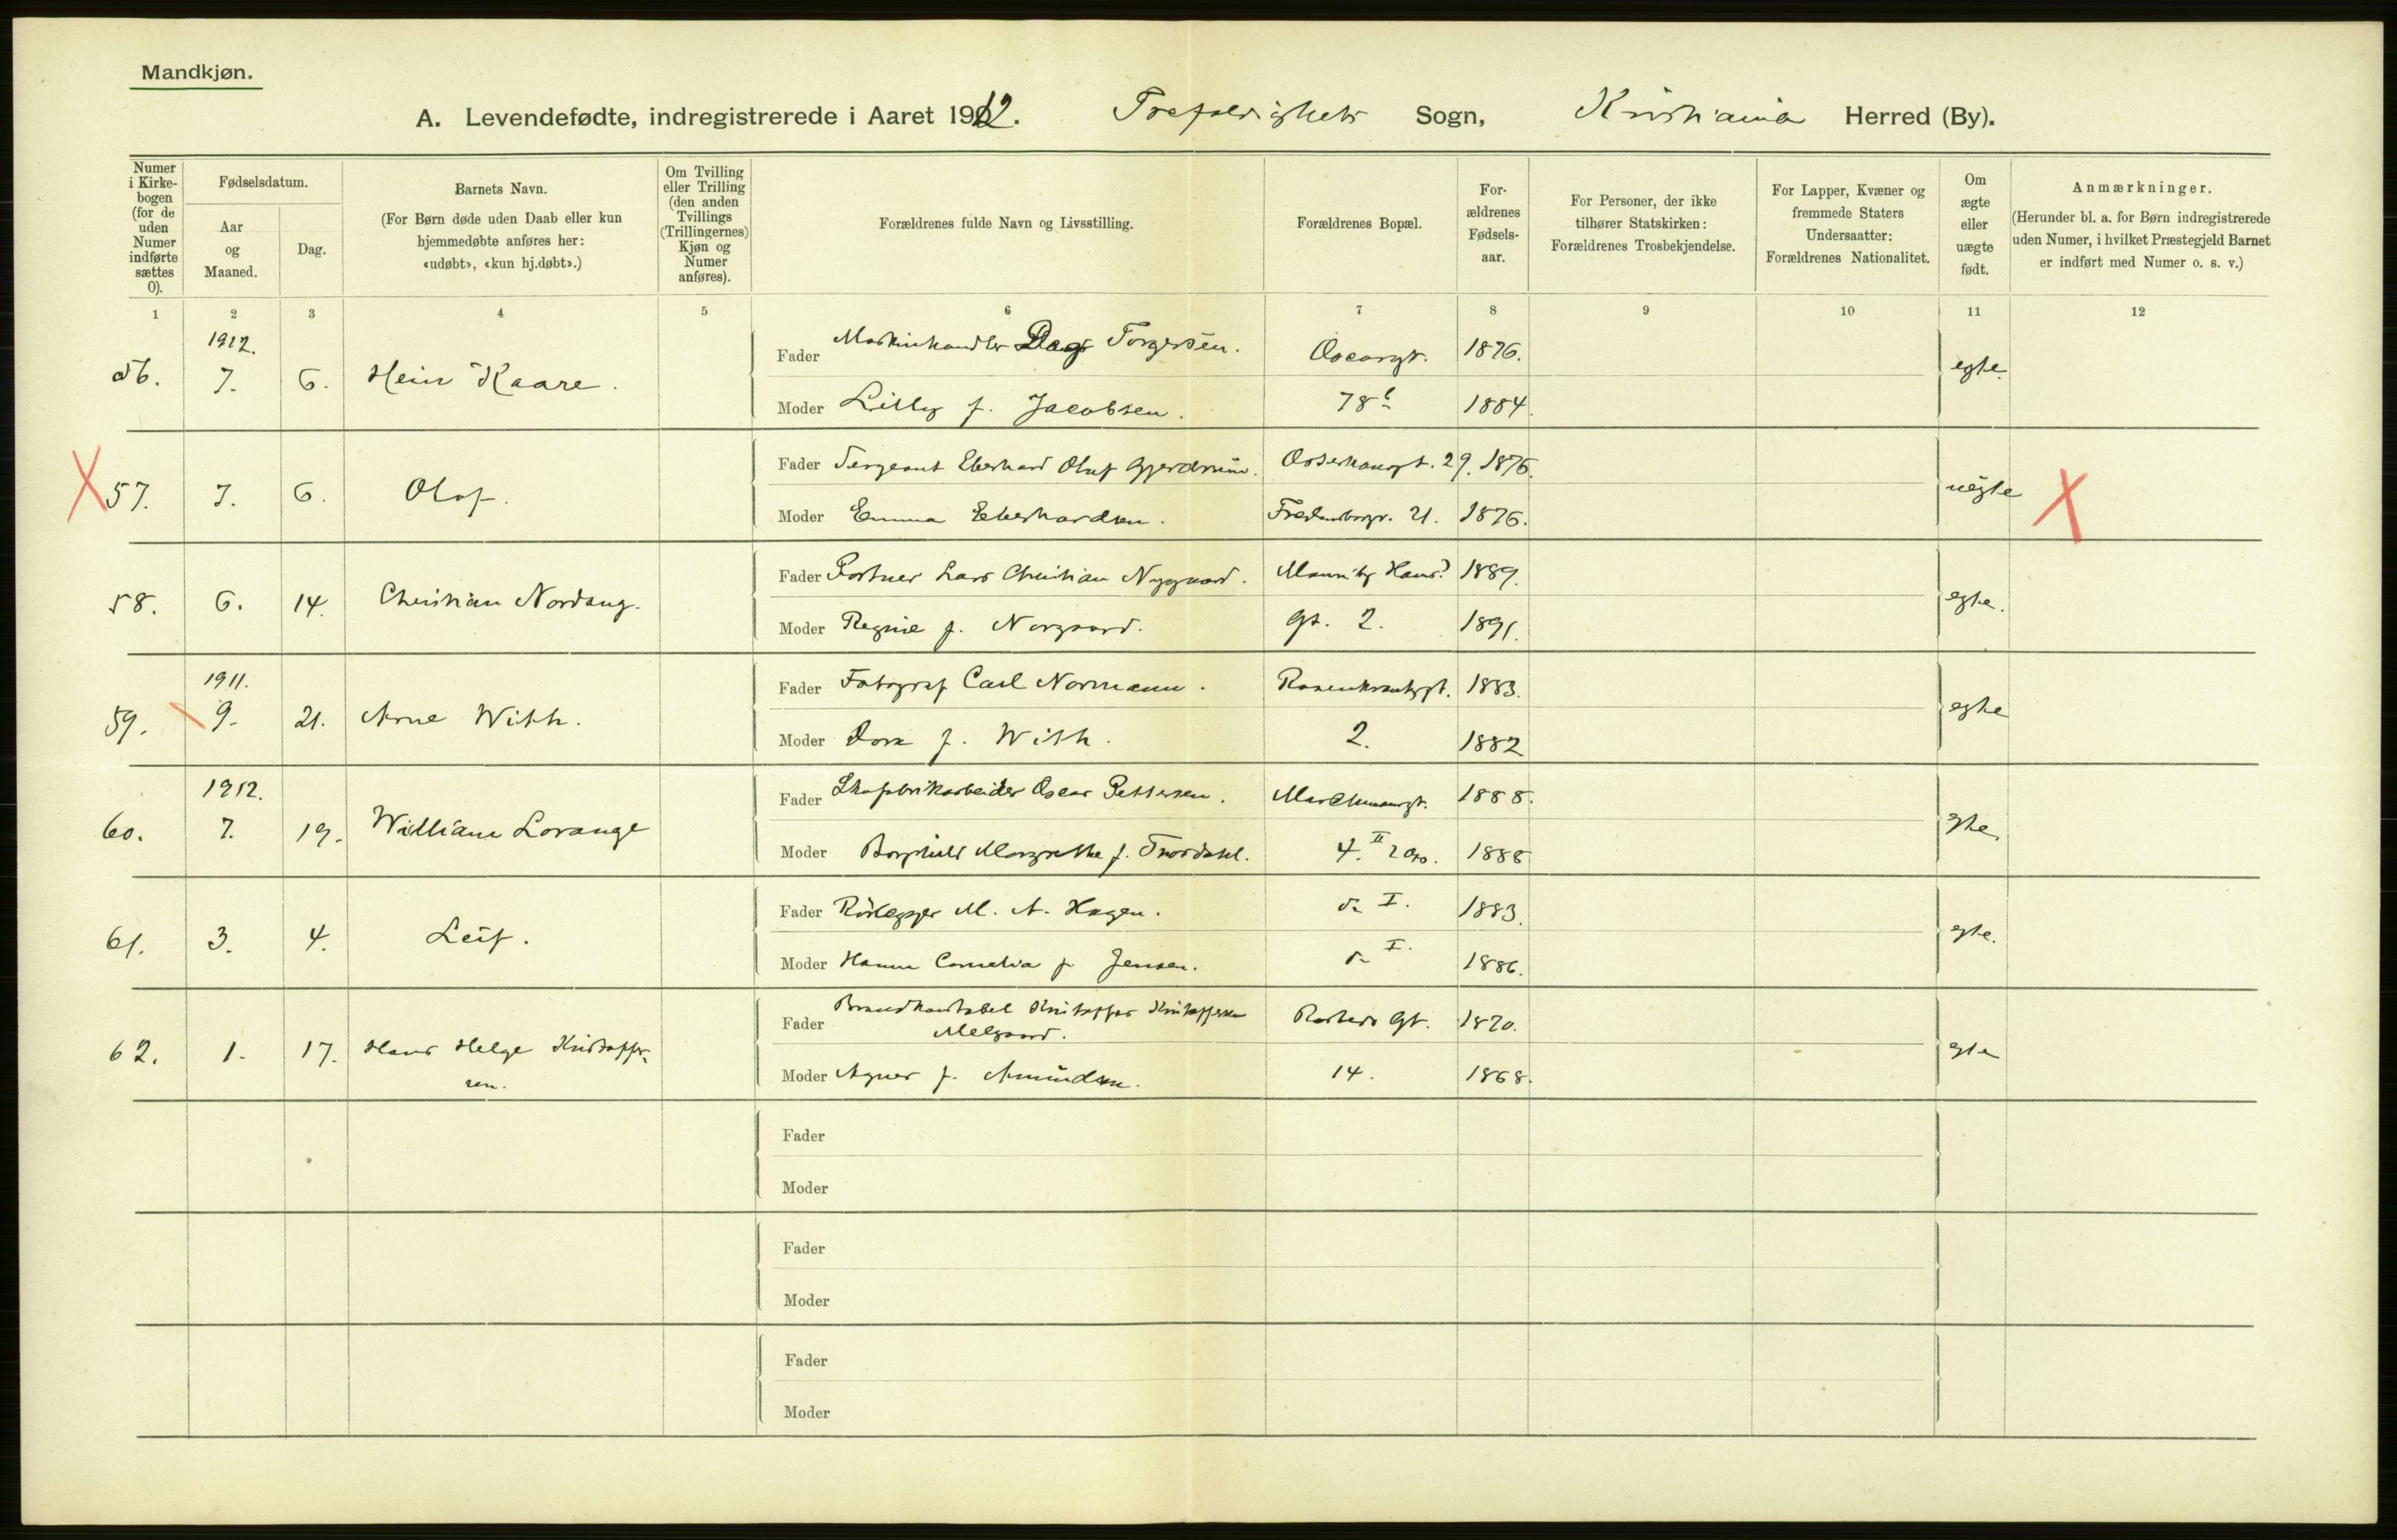 Mandkjøn.
A. Levendefødte, indregistrerede i Aaret 1912. Trefoldigheds Sogn, Kristiania Herred (By).
Numer i Kirkebogen (for de uden Numer indførte sættes 0).
Fødselsdatum.
Aar og Maaned.
Dag.
Barnets Navn.
(For Børn døde uden Daab eller kun
hjemmedøbte anføres her:
«udøbt», «kun hj.døbt».)
Om Tvilling
eller Trilling
(den anden
Tvillings
(Trillingernes)
Kjøn og
Numer
anføres).
Forældrenes fulde Navn og Livsstilling.
Forældrenes Bopæl.
For-
ældrenes
Fødsels-
aar.
For Personer, der ikke
tilhører Statskirken:
Forældrenes Trosbekjendelse.
For Lapper, Kvæner og
fremmede Staters
Undersaatter:
Forældrenes Nationalitet.
Om
ægte
eller
uægte
født.
Anmærkninger.
(Herunder bl. a. for Børn indregistrerede
uden Numer, i hvilket Præstegjeld Barnet
er indført med Numer o. s. v.)
1 2 3 4 5 6 7 8 9 10 11 12
1912.
56. 7. 6. Hein Kaare.
Fader Maskinhandler Dag Torgersen. Oscarsgt. 1876. egte.
Moder Lilly f. Jacobsen. 78 b 1884.
X 57. 7. 6. Olaf.
Fader Sergeant Eberhard Oluf Gjerdrum. Osterhausgt. 29. 1876. uegte X
Moder Emma Eberhardsen. Fredensborgv. 21. 1876.
58. 6. 14. Christian Nordang.
Fader Portner Lars Christian Nygaard. Mauritz Hans? 1889. egte.
Moder Regine f. Norgaard. gt. 2. 1891.
1911.
59. 9. 21. Arne With.
Fader Fotograf Carl Normann. Rosenkrantzgt. 1883. egte
Moder f. With. 2. 1882
1912.
60. 7. 19. William Lorange
Fader Skofabrikarbeider Oscar Pettersen. 1888. egte.
Moder Borghild Margrethe f. 4. II 1888
61. 3. 4. Leif.
Fader Rörlegger M. A. Hagen. do I. 1883. egte.
Moder Hanna Cornelia f. Jensen. do I. 1886.
62. 1. 17. Hans Helge Kristoffer-
sen.
Fader Brandkonstabel Kristoffer Kristoffersen
Melgaard. Rosteds Gt. 1870. egte
Moder Agnes f. Amundsen. 14. 1868.
Fader
Moder
Fader
Moder
Fader
Moder